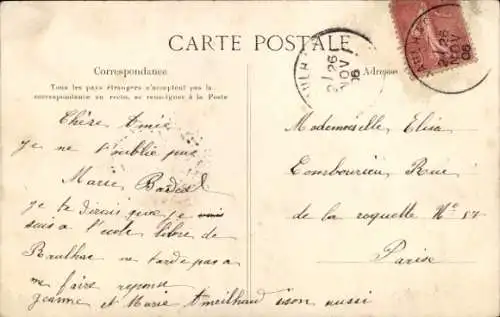 CARTE POSTALE
Correspondance
Tous les pays étrangers n'acceptent pas la
correspondance au recto, se renseigner à la Poste
Adresse
26
NOV
06
26
NOV
06
Chère Amie
je ne t'oublie pas
Marie
je te dirais que je suis
suis a l'école libre de
Baulhac ne tarde pas a
me faire reponse
Jeanne et Marie Ameilhaud ison aussi
Mademoiselle Elisa
Combourieu Rue
de la roquette No 87
Parise